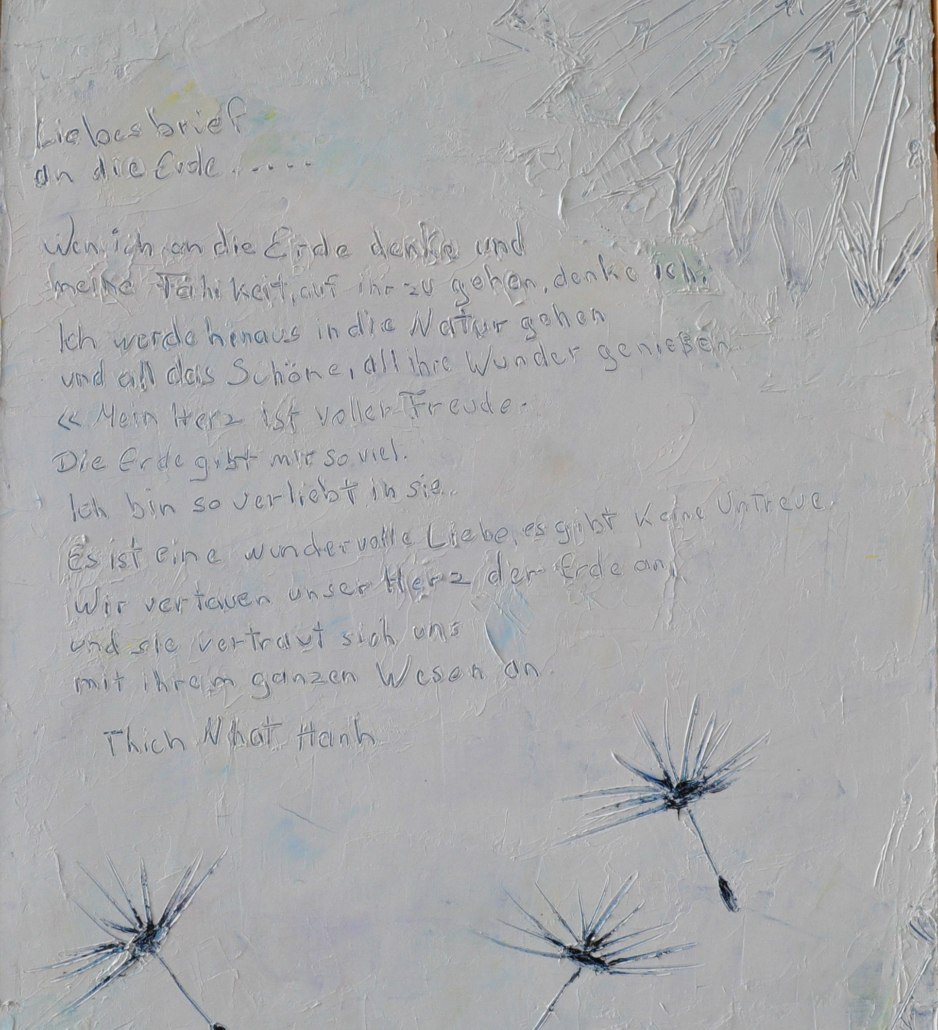 Liebesbrief
an die Erde.....
Wen ich an die Erde denke und
meine Fähikeit, auf ihr zu gehen, denke ich:
Ich werde henaus in die Natur gehen
und all das Schöne, all ihre Wunder genießen
« Mein Herz ist voller Freude.
Die Erde gibt mir so viel.
Ich bin so verliebt in sie..
Es ist eine wundervolle Liebe, es gibt keine Untreue.
Wir vertauen unser Herz der Erde an,
und sie vertraut sich uns
mit ihrem ganzen Wesen an.
Thich Nhat Hanh